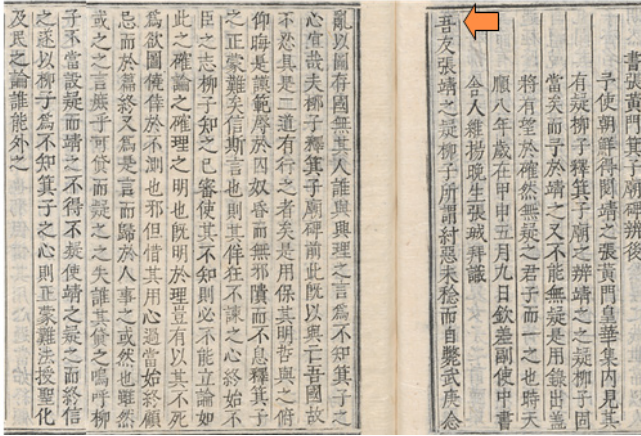 書張黃門箕子廟碑辨後
予使朝鮮得閱靖之張黃門皇華集內見其
有疑柳子釋箕子廟之辨靖之之疑柳子固
當矣而予於靖之又不能無疑是用錄出蓋
將有望於確然無疑之君子而一之也時天
順八年歲在甲申五月九日欽差副使中書
舍人維揚晚生張珹拜識
吾友張靖之疑柳子所謂紂惡未稔而自斃武庚念
亂以圖存國無其人誰與興理之言爲不知箕子之
心宜哉夫柳子釋箕子廟碑前此旣以與亡吾國故
不忍具是二道有行之者矣是用保其明哲與之俯
仰晦是謨範辱於囚奴昏而無邪隤而不息釋箕子
之正蒙難矣信斯言也則其佯狂不諫之心終始不
臣之志柳子知之已審使其不知則必不能立論如
此之確論之確理之明也旣明於理豈有以其不死
爲欲圖僥倖於不測也邪但惜其用心過當始終顧
忌而於篇終又爲是言而歸於人事之或然也雖然
或之之言庶乎可貸而疑之之失誰其貸之嗚呼柳
子不當設疑而靖之不得不疑使靖之疑之而終信
之遂以柳子爲不知箕子之心則正蒙難法授聖化
及民之論誰能外之